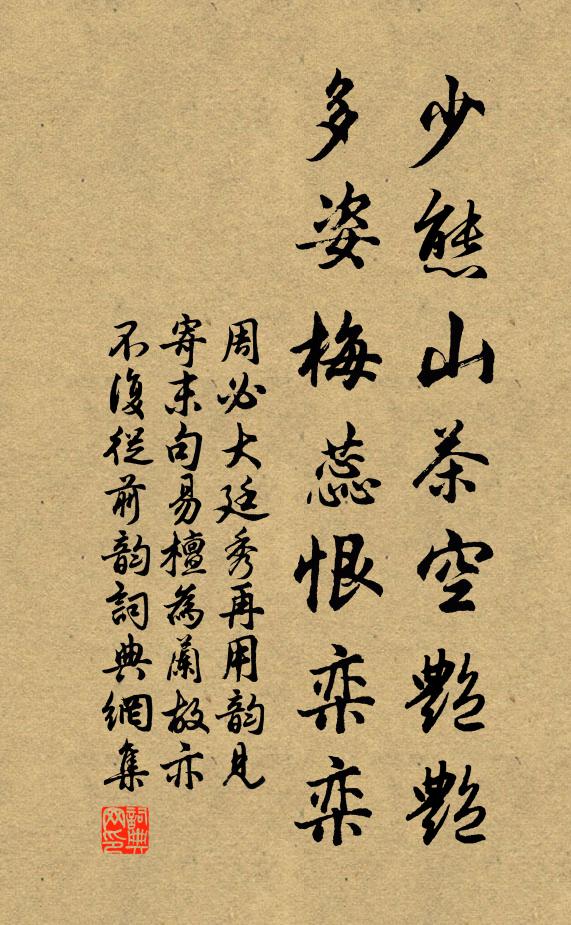 少態山茶空艷艷
多姿梅蕊恨奕奕
周必大廷秀再用韵見
寄末句易檀為蘭故亦
不復從前韵詞典網集
詞典网印